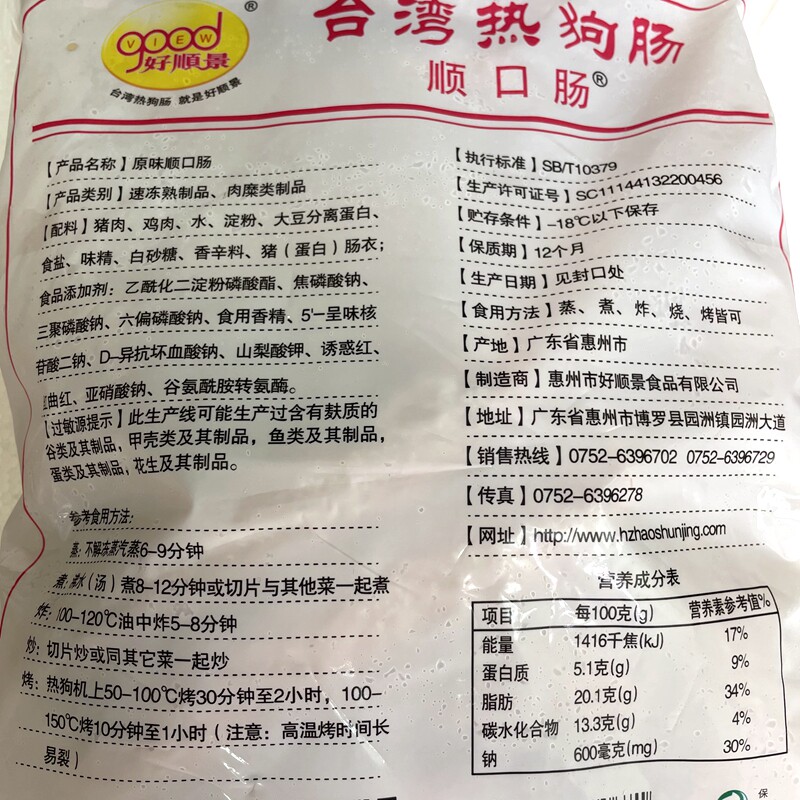 ®
good
VIEW
好順景
台湾热狗肠 就是好顺景
台湾热狗肠
顺口肠®
【产品名称】原味顺口肠
【产品类别】速冻熟制品、肉糜类制品
【配料】猪肉、鸡肉、水、淀粉、大豆分离蛋白、
食盐、味精、白砂糖、香辛料、猪（蛋白）肠衣；
食品添加剂：乙酰化二淀粉磷酸酯、焦磷酸钠、
三聚磷酸钠、六偏磷酸钠、食用香精、5'-呈味核
苷酸二钠、D-异抗坏血酸钠、山梨酸钾、诱惑红、
曲红、亚硝酸钠、谷氨酰胺转氨酶。
【过敏源提示】此生产线可能生产过含有麸质的
谷类及其制品，甲壳类及其制品，鱼类及其制品，
蛋类及其制品，花生及其制品。
参考食用方法：
蒸：不解冻蒸汽蒸6-9分钟
煮：沸水（汤）煮8-12分钟或切片与其他菜一起煮
炸：100-120℃油中炸5-8分钟
炒：切片炒或同其它菜一起炒
烤：热狗机上50-100℃烤30分钟至2小时，100-
150℃烤10分钟至1小时（注意：高温烤时间长
易裂）
【执行标准】SB/T10379
【生产许可证号】SC11144132200456
【贮存条件】-18℃以下保存
【保质期】12个月
【生产日期】见封口处
【食用方法】蒸、煮、炸、烧、烤皆可
【产地】广东省惠州市
【制造商】惠州市好顺景食品有限公司
【地址】广东省惠州市博罗县园洲镇园洲大道
【销售热线】0752-6396702 0752-6396729
【传真】0752-6396278
【网址】http://www.hzhaoshunjing.com
营养成分表
项目 每100克(g) 营养素参考值%
能量 1416千焦(kJ) 17%
蛋白质 5.1克(g) 9%
脂肪 20.1克(g) 34%
碳水化合物 13.3克(g) 4%
钠 600毫克(mg) 30%
保